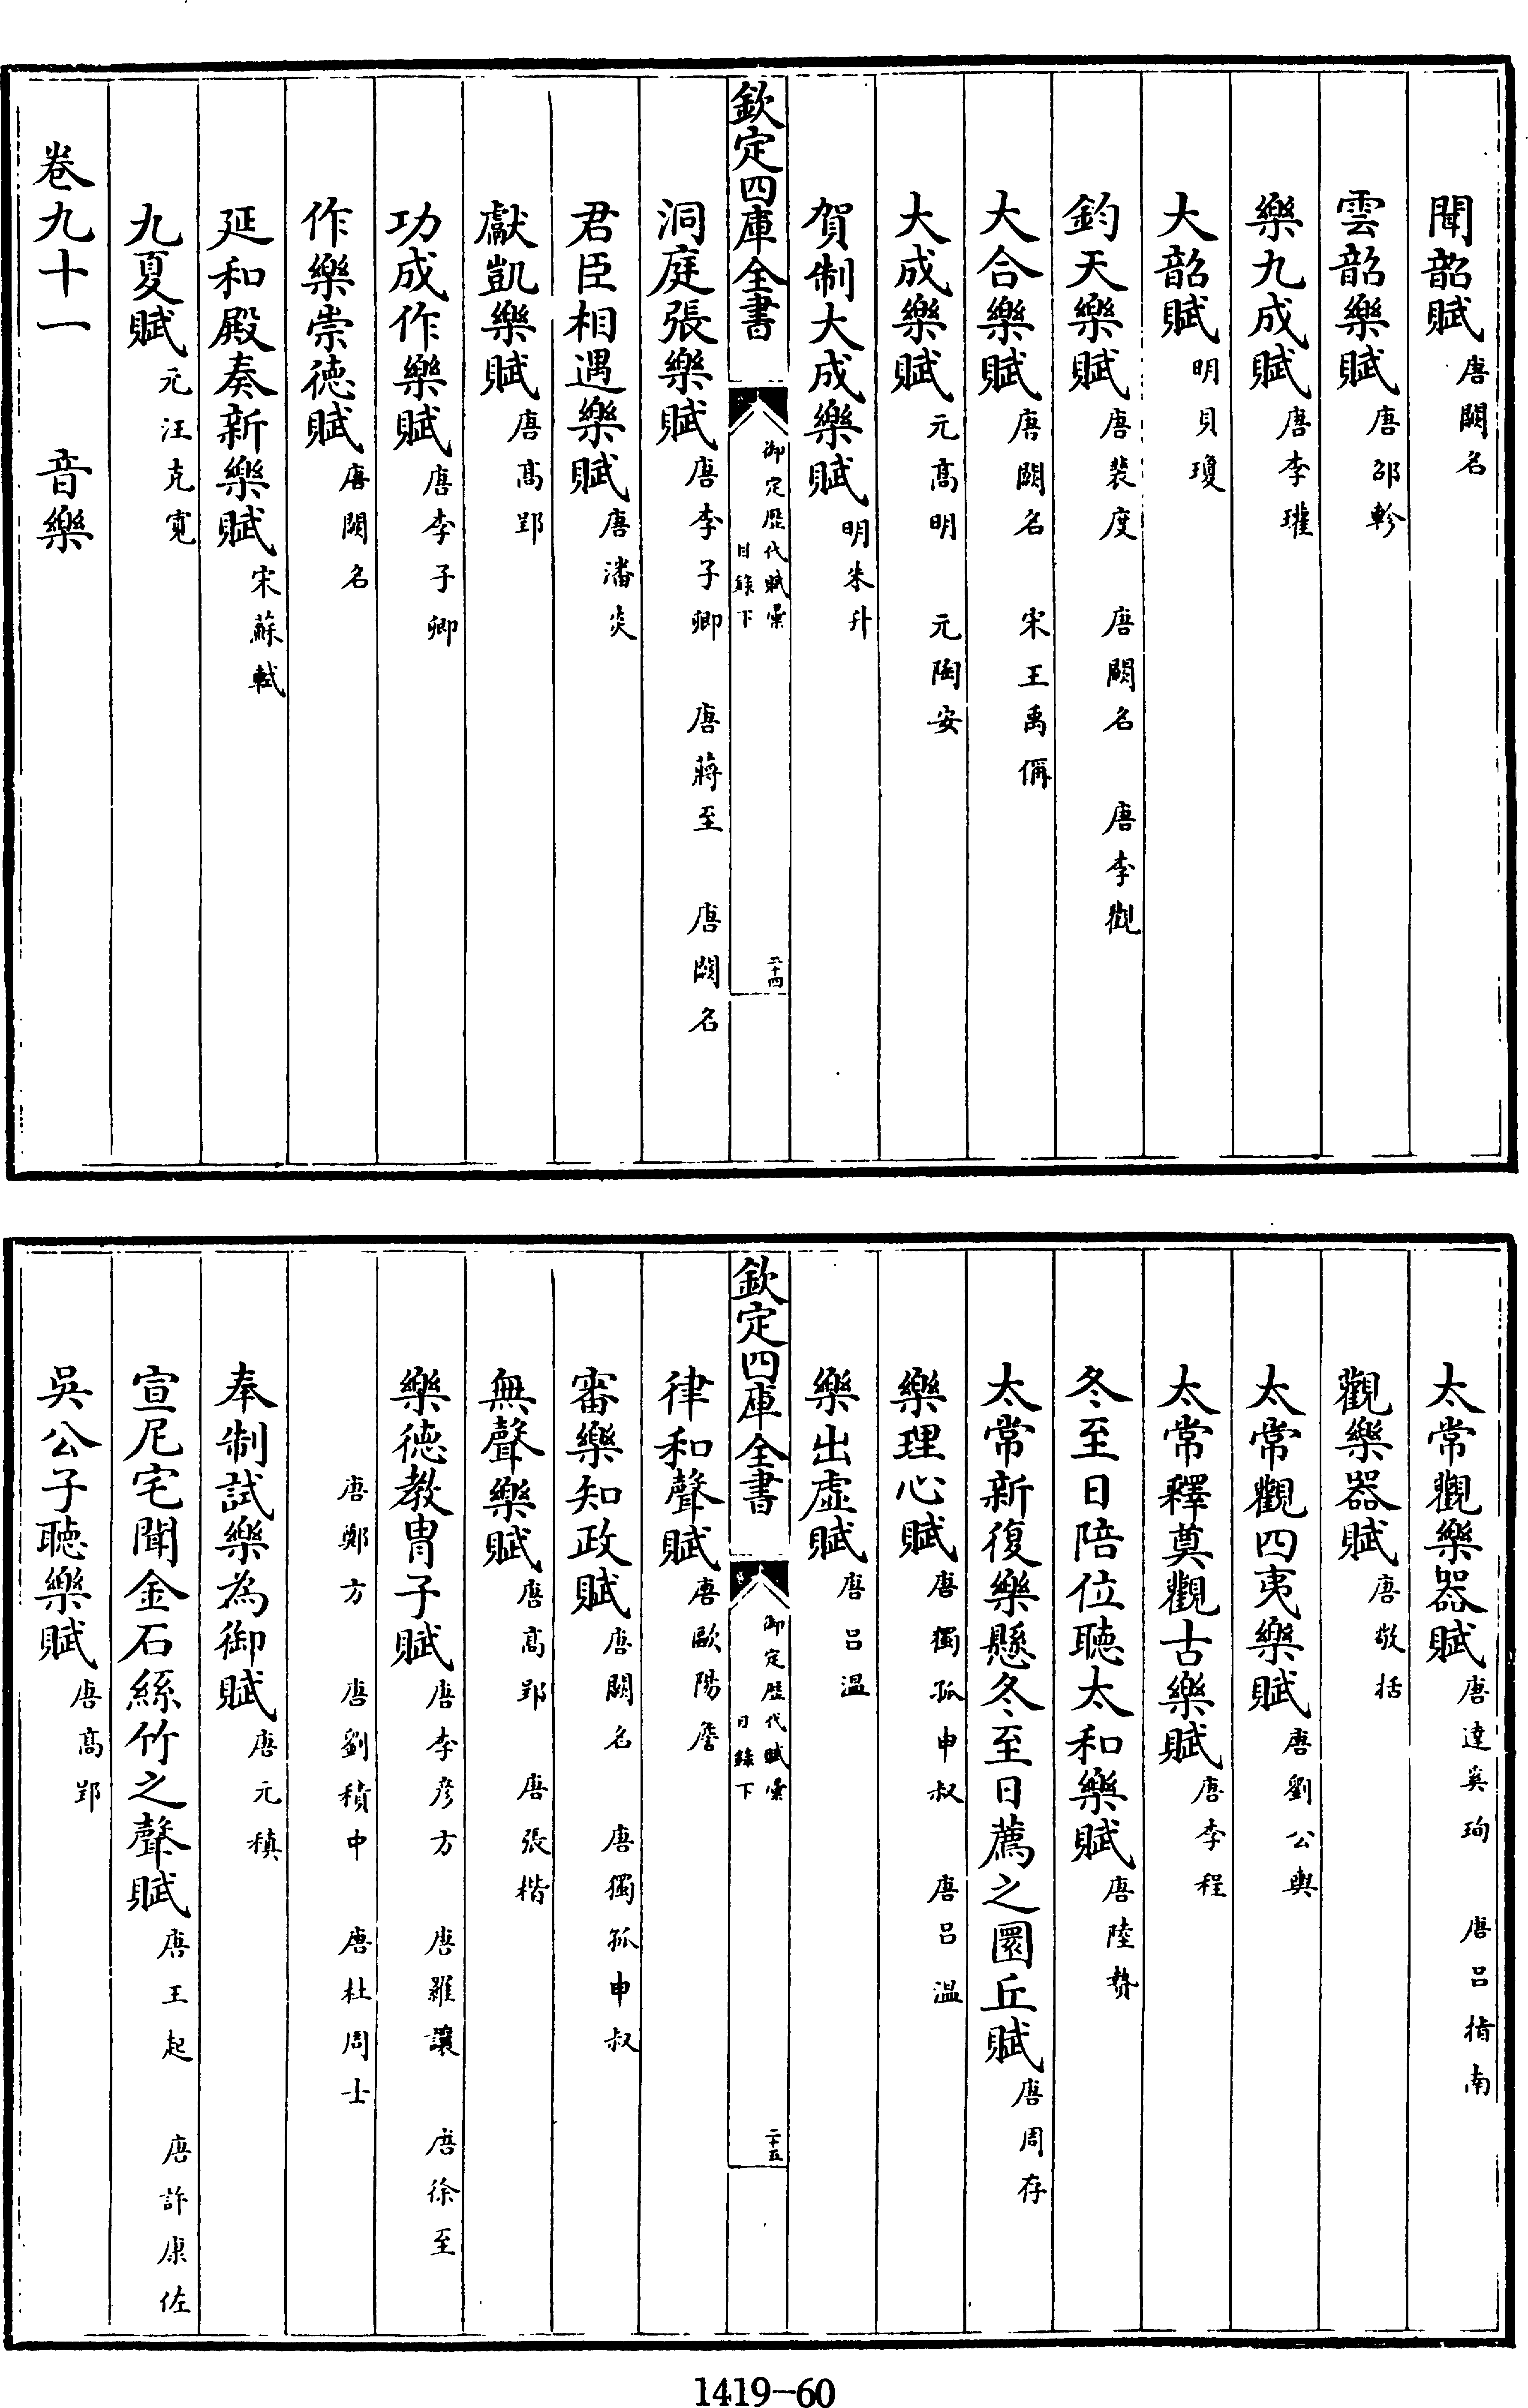 聞韶賦唐闕名
雲韶樂賦唐邵軫
樂九成賦唐李瓘
大韶賦明貝瓊
鈞天樂賦唐裴度 唐闕名 唐李觀
大合樂賦唐闕名 宋王禹偁
大成樂賦元高明 元陶安
賀制大成樂賦明朱升
欽定四庫全書
御定歷代賦彙
目錄下
二十四
洞庭張樂賦唐李子卿 唐蔣至 唐闕名
君臣相遇樂賦唐潘炎
獻凱樂賦唐高郢
功成作樂賦唐李子卿
作樂崇德賦唐闕名
延和殿奏新樂賦宋蘇軾
九夏賦元汪克寬
卷九十一 音樂
太常觀樂器賦唐達奚珣 唐呂指南
觀樂器賦唐敬括
太常觀四夷樂賦唐劉公輿
太常釋奠觀古樂賦唐李程
冬至日陪位聽太和樂賦唐陸贄
太常新復樂懸冬至日薦之圜丘賦唐周存
樂理心賦唐獨孤申叔 唐呂溫
樂出虛賦唐呂溫
欽定四庫全書
御定歷代賦彙
目錄下
二十五
律和聲賦唐歐陽詹
審樂知政賦唐闕名 唐獨孤申叔
無聲樂賦唐高郢 唐張楷
樂德教胄子賦唐李彥方 唐羅讓 唐徐至
唐鄭方 唐劉積中 唐杜周士
奉制試樂為御賦唐元稹
宣尼宅聞金石絲竹之聲賦唐王起 唐許康佐
吳公子聽樂賦唐高郢
1419-60